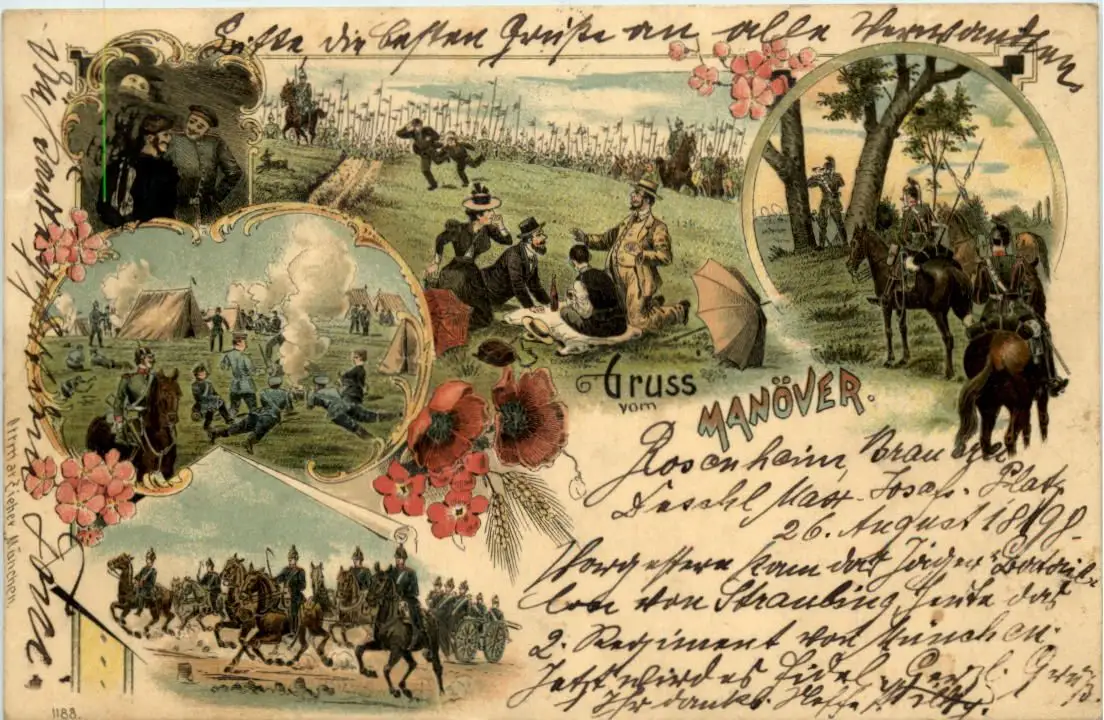 Bitte die besten Grüße an alle Verwandten
Gruss
vom
MANÖVER.
Rosenheim, Brauerei
Deschl Max-Josefs-Platz
26. August 1898.
Vorgestern kam das Jäger Batail-
lon von Straubing, heute das
2. Regiment von München.
Jetzt wird es fidel. Herzl. Gruß
Ihr dankb. Neffe
Ottmar Zieher, München.
1188.